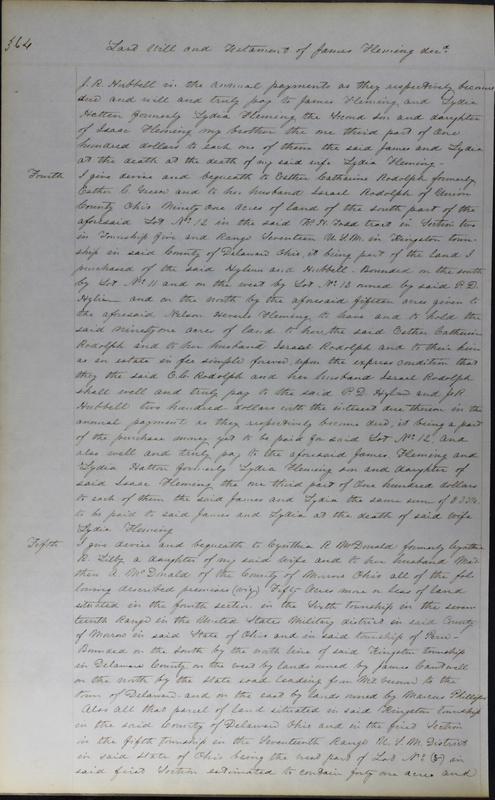 564
Last Will and Testament of James Fleming decd
J. R. Hubbell in the annual payments as they respectively become
due and will and truly pay to James Fleming, and Lydia
Hatten formerly Lydia Fleming, the second son and daughter
of Isaac Fleming my brother the one third part of One
hundred dollars to each one of them the said James and Lydia
at the death at the death of my said wife Lydia Fleming -
Fourth I give devise and bequeath to Esther Catharine Rodolph formerly
Esther C. and to her husband Israel Rodolph of Union
County Ohio Ninety one acres of land of the south part of the
aforesaid Lot No 12 in the said Todd tract in Section two
in Township five and Range Seventeen U.S.M. in Kingston town-
ship in said County of Delaware Ohio, it being part of the land I
purchased of the said and Hubbell. Bounded on the south
by Lot No 11 and on the west by Lot No 13 owned by said P. D.
and on the north by the aforesaid fifteen acres given to
the aforesaid Nelson Fleming to have and to hold the
said Ninety one acres of land to her the said Esther Catharine
Rodolph and to her husband Israel Rodolph and to their heirs
as an estate in fee simple forever, upon the express condition that
they the said E. C. Rodolph and her husband Israel Rodolph
shall well and truly pay to the said P. D. and J. R.
Hubbell two hundred dollars with the interest due thereon in the
annual payment as they respectively become due, it being a part
of the purchase money yet to be paid for said Lot No 12 and
also well and truly pay to the aforesaid James Fleming and
Lydia Hatton formerly Lydia Fleming son and daughter of
said Isaac Fleming the one third part of One hundred dollars
to each of them the said James and Lydia the same sum of
to be paid to said James and Lydia at the death of said wife
Lydia Fleming
Fifth I give devise and bequeath to Cynthia R. McDonald formerly Cynthia
R. a daughter of my said wife and to her husband Mat-
thew A. McDonald of the County of Morrow Ohio all of the fol-
lowing described premises (viz) Fifty Acres more or less of land
situated in the fourth section in the Sixth township in the seven
teenth Range in the United States Military district in said County
of Morrow in said State of Ohio and in said township of Peru -
Bounded on the south by the north line of said Kingston township
in Delaware County on the west by lands owned by James
on the north by the state road leading from Mt Vernon to the
town of Delaware and on the east by lands owned by Marcus Phillips
Also all that parcel of land situated in said Kingston township
in the said County of Delaware Ohio and in the first Section
in the fifth township in the Seventeenth Range U. S. M. District
in said State of Ohio being the west part of Lot No (8) in
said first Section estimated to contain forty one acres and